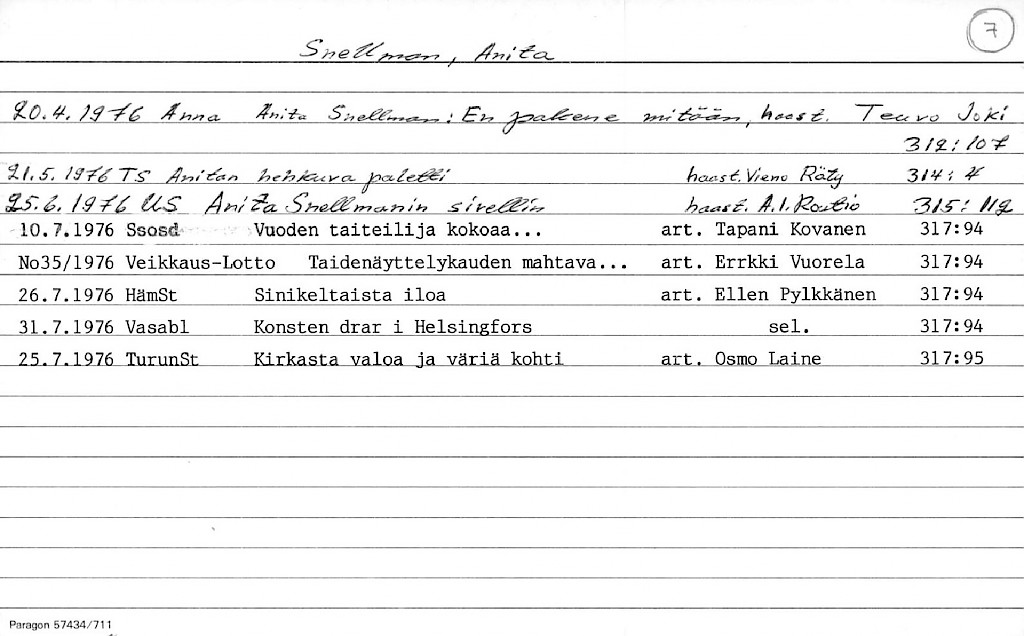 7
Snellman, Anita
20.4.1976 Anna Anita Snellman: En pakene mitään, haast. Teuvo Joki
312:107
21.5.1976 TS Anitan hehkuva paletti haast. Vieno Räty 314:4
25.6.1976 US Anita Snellmanin sivellin haast. A.I. Routio 315:112
10.7.1976 Ssosd Vuoden taiteilija kokoaa... art. Tapani Kovanen 317:94
No35/1976 Veikkaus-Lotto Taidenäyttelykauden mahtava... art. Errkki Vuorela 317:94
26.7.1976 HämSt Sinikeltaista iloa art. Ellen Pylkkänen 317:94
31.7.1976 Vasabl Konsten drar i Helsingfors sel. 317:94
25.7.1976 TurunSt Kirkasta valoa ja väriä kohti art. Osmo Laine 317:95
Paragon 57434/711